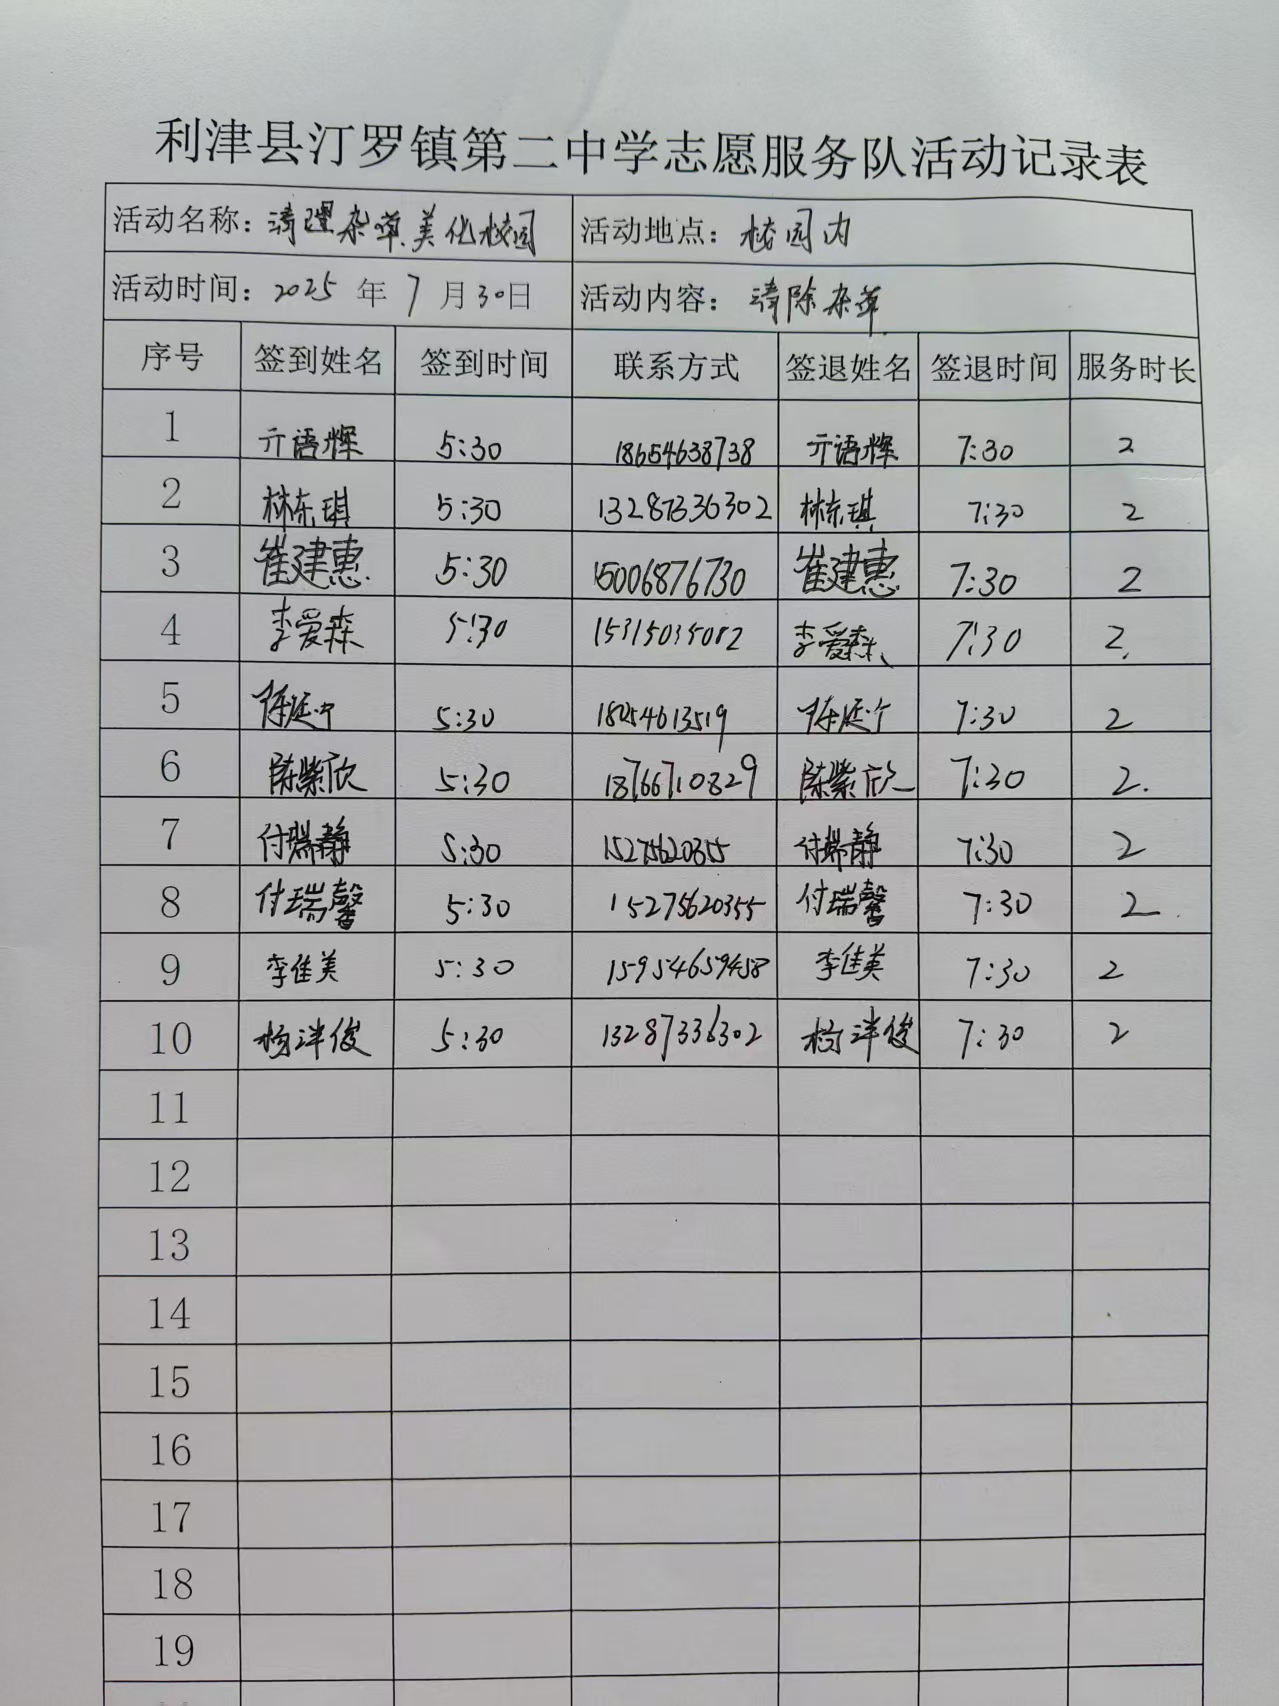 利津县汀罗镇第二中学志愿服务队活动记录表
活动名称：清理杂草.美化校园 活动地点：校园内
活动时间：2025 年 7 月 30日 活动内容：清除杂草
序号 签到姓名 签到时间 联系方式 签退姓名 签退时间 服务时长
1 亓语辉 5:30 18654638738 亓语辉 7:30 2
2 林东琪 5:30 13287336302 林东琪 7:30 2
3 崔建惠. 5:30 15006876730 崔建惠 7:30 2
4 李爱森 5:30 15315035082 李爱森 7:30 2.
5 陈延宁 5:30 18054613519 陈延宁 7:30 2
6 陈紫欣 5:30 18766710829 陈紫欣 7:30 2.
7 付瑞静 5:30 15275620355 付瑞静 7:30 2
8 付瑞馨 5:30 15275620355 付瑞馨 7:30 2.
9 李佳美 5:30 15954659458 李佳美 7:30 2
10 杨洋俊 5:30 13287336302 杨洋俊 7:30 2
11
12
13
14
15
16
17
18
19